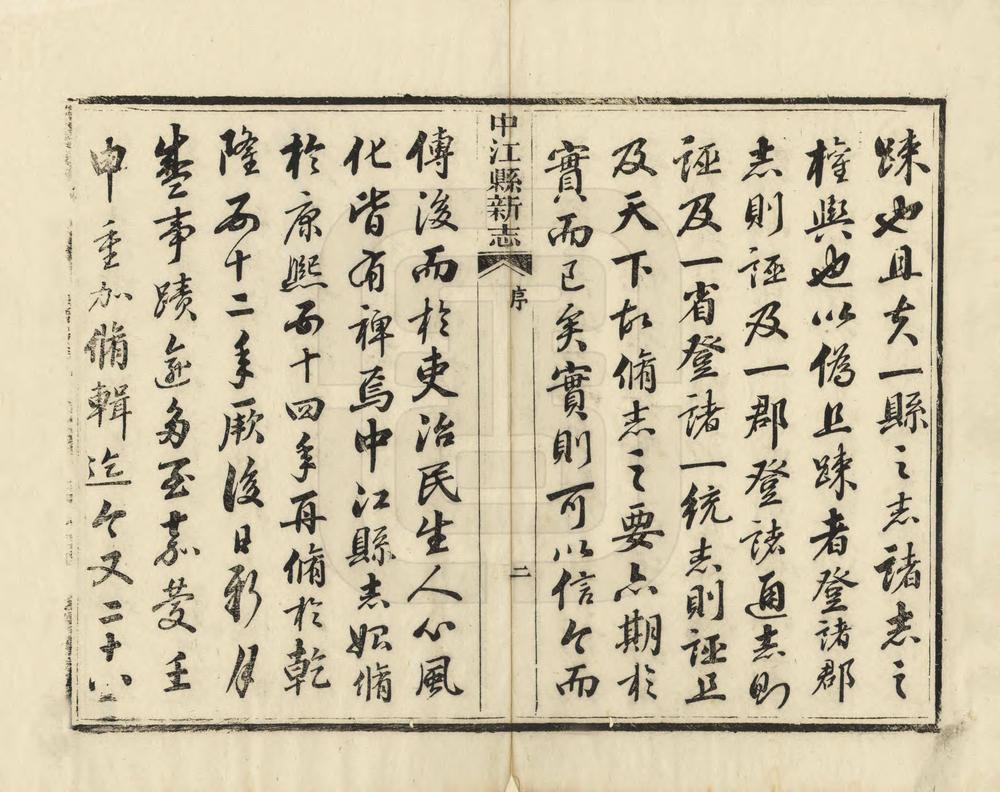 踈也且夫一縣之志諸志之
權輿也以偽且踈者登諸郡
志則誣及一郡登諸通志則
誣及一省登諸一統志則誣且
及天下故脩志之要亦期於
實而已矣實則可以信今而
中江縣新志 序 二
傳後而於吏治民生人心風
化皆有裨焉中江縣志始脩
於康熙五十四年再脩於乾
隆五十二年厥後日新月
盛事蹟遞多至嘉慶壬
申重加脩輯迄今又二十